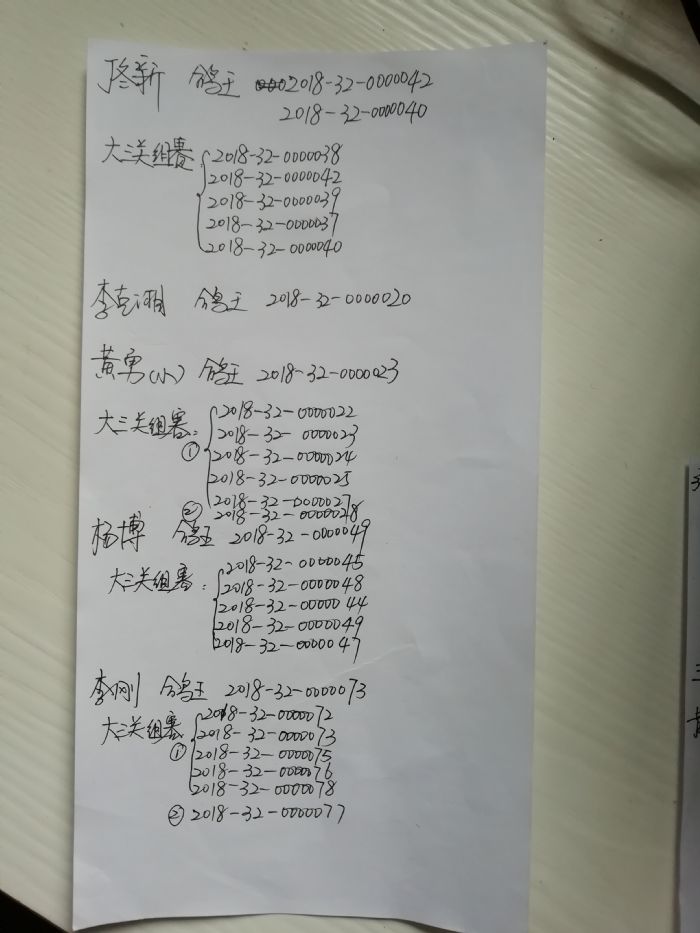 佟新 鸽王 2018-32-0000042
2018-32-0000040
大三关组赛 2018-32-0000038
2018-32-0000042
2018-32-0000039
2018-32-0000037
2018-32-0000040
李克湘 鸽王 2018-32-0000020
黄勇(小) 鸽王 2018-32-0000023
大三关组赛: ① 2018-32-0000022
2018-32-0000023
2018-32-0000024
2018-32-0000025
2018-32-0000027
② 2018-32-0000028
杨博 鸽王 2018-32-0000049
大三关组赛: 2018-32-0000045
2018-32-0000048
2018-32-0000044
2018-32-0000049
2018-32-0000047
李刚 鸽王 2018-32-0000073
大三关组赛 ① 2018-32-0000072
2018-32-0000073
2018-32-0000075
2018-32-0000076
2018-32-0000078
② 2018-32-0000077